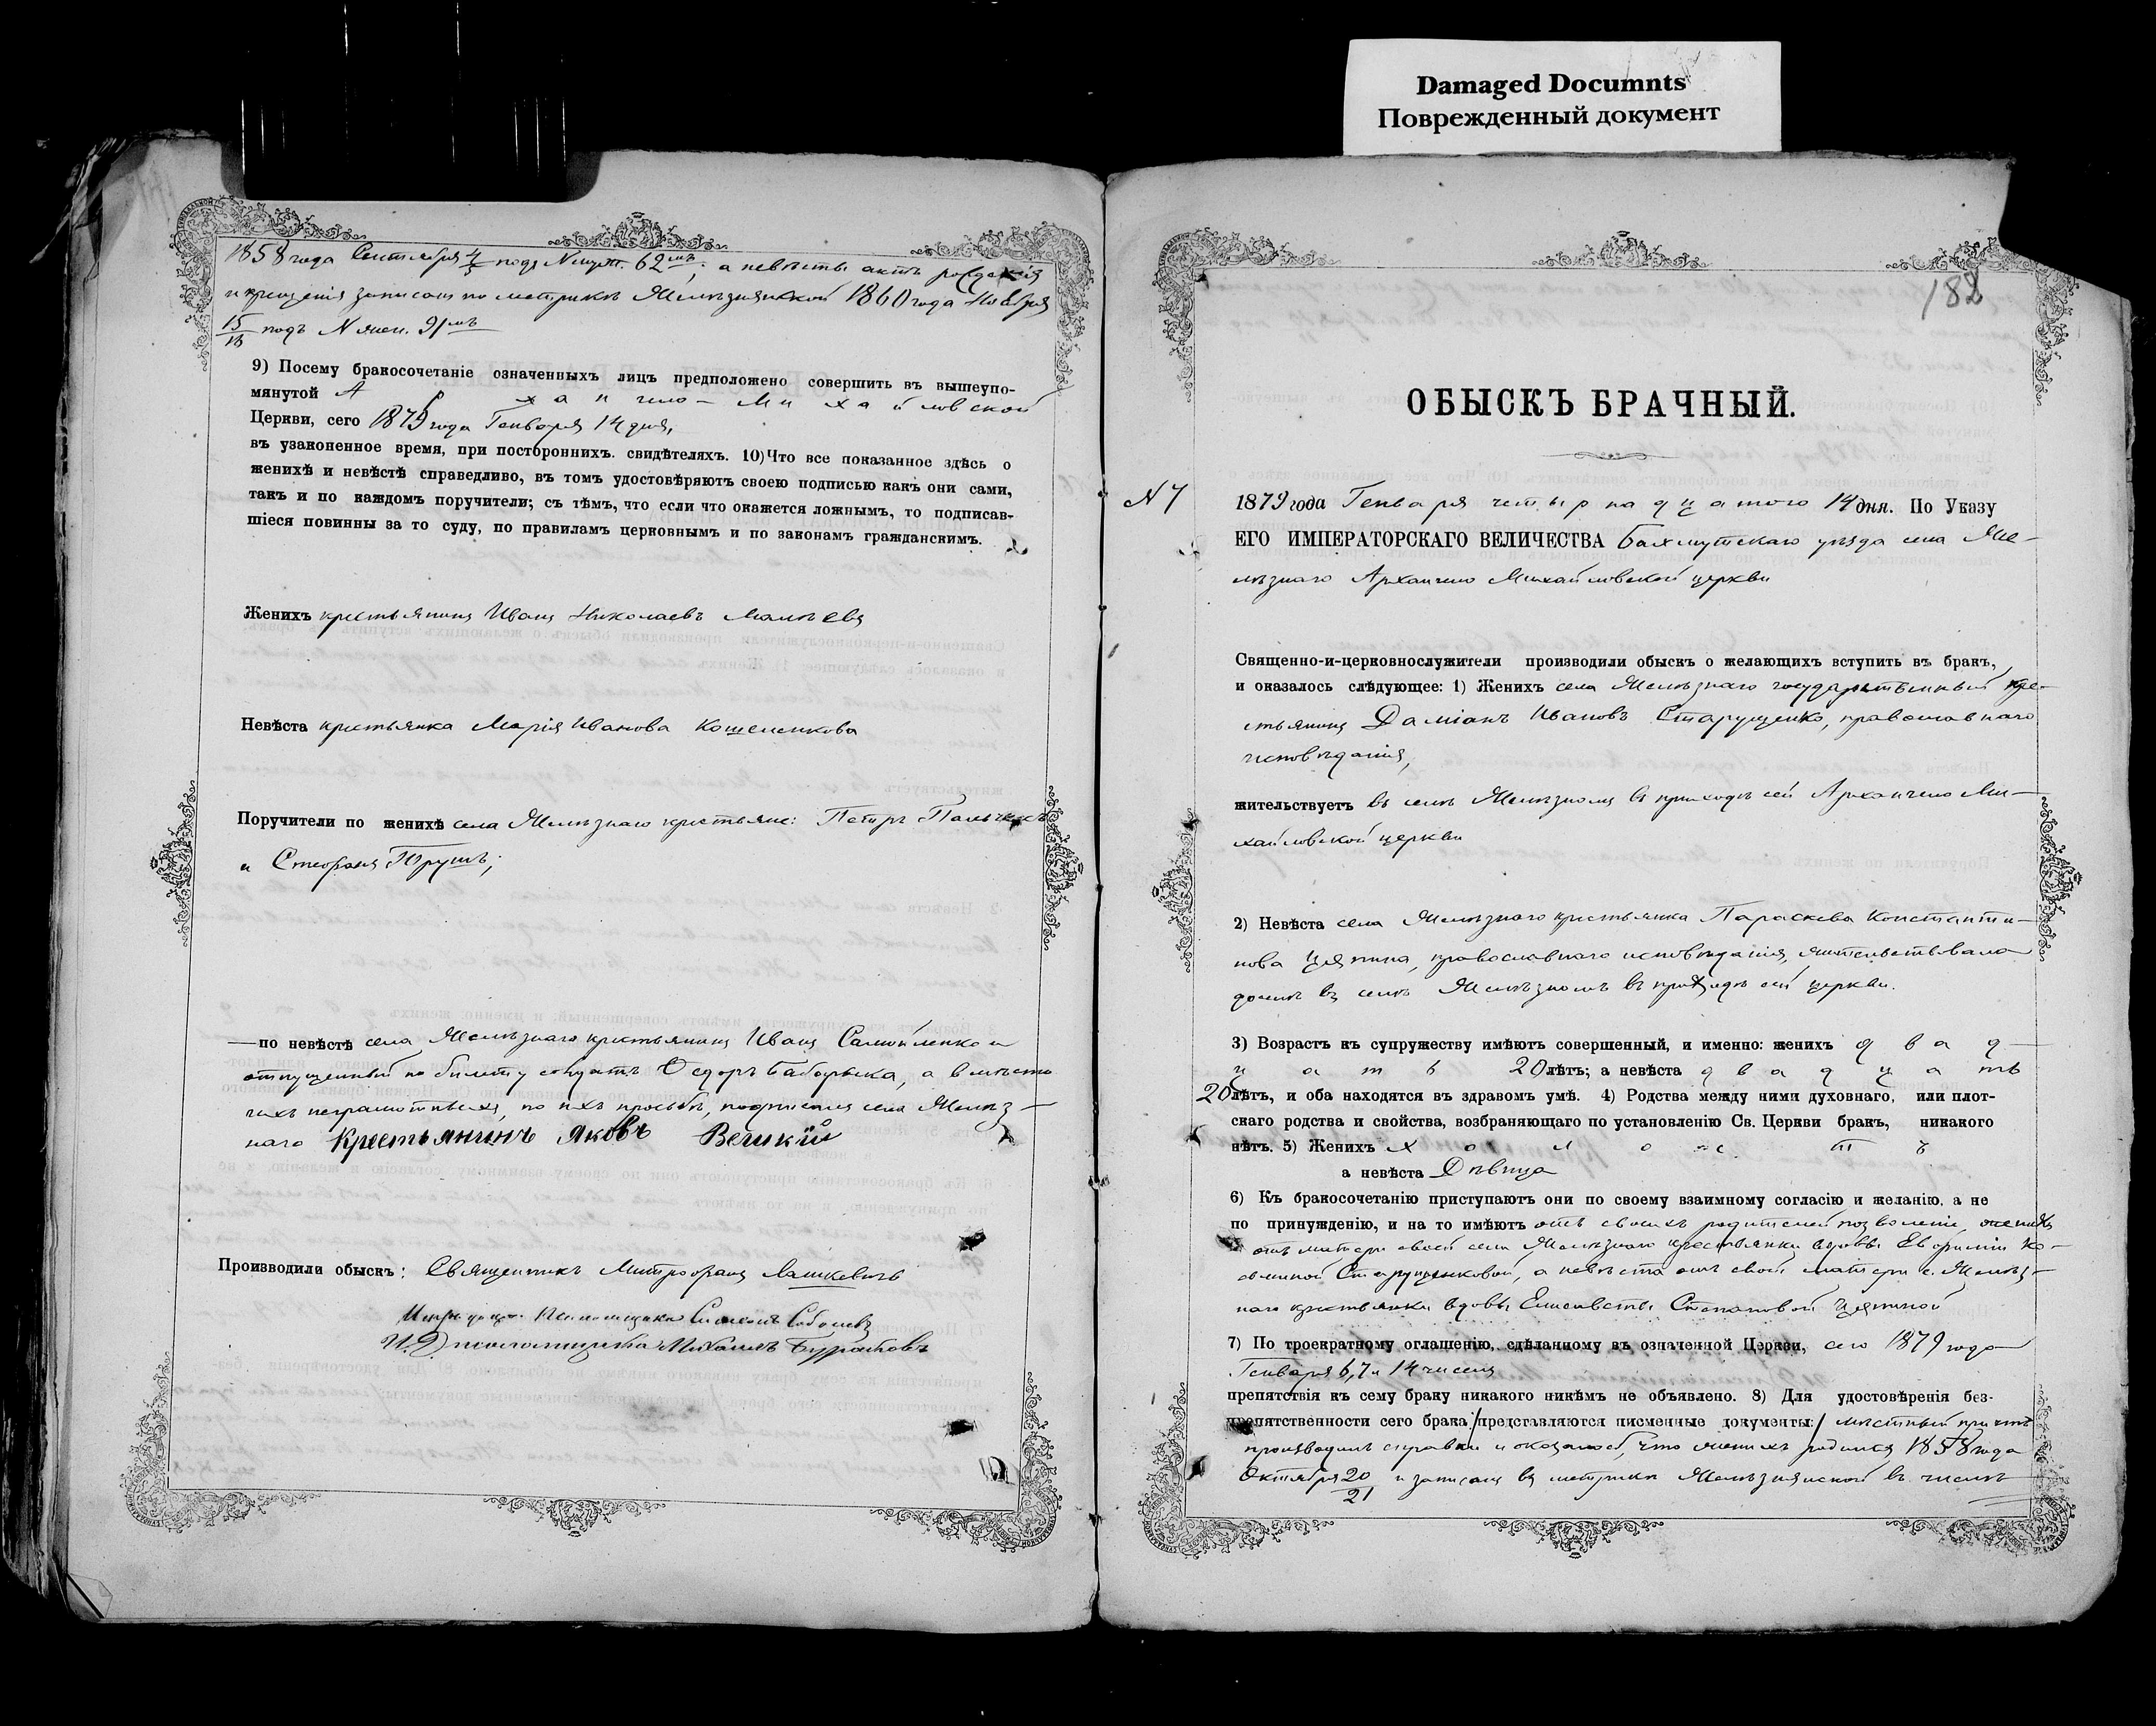 Damaged Documnts
Поврежденный документ
1858 года Сентября 4/5 подъ N муж. 62мъ; а невѣсты актъ рожденія
и крещенія записанъ по метрикѣ Желѣзнянской 1860 года Ноября
15/16 подъ N жен. 91мъ
9) Посему бракосочетаніе означенныхъ лицъ предположено совершить въ вышеупо-
мянутой Архангело-Михайловской
Церкви, сего 1879 года Генваря 14 дня,
въ узаконенное время, при постороннихъ. свидѣтеляхъ. 10) Что все показанное здѣсь о
женихѣ и невѣстѣ справедливо, въ томъ удостовѣряютъ своею подписью какъ они сами,
такъ и по каждомъ поручители; съ тѣмъ, что если что окажется ложнымъ, то подписав-
шіеся повинны за то суду, по правиламъ церковнымъ и по законамъ гражданскимъ.
Женихъ крестьянинъ Иванъ Николаевъ
Невѣста крестьянка Марія Иванова Кошеленкова
Поручители по женихѣ села Желѣзнаго крестьяне: Петръ
и Стефанъ
—по невѣстѣ села Желѣзнаго крестьянинъ Иванъ Самойленко и
отпущенный по билету солдатъ Ѳедоръ Бабарыка, а вмѣсто
ихъ неграмотныхъ, по ихъ просьбѣ, подписался села Желѣз-
наго Крестьянинъ Яковъ Великій
Производили обыскъ: Священникъ Митрофанъ Лашкевичъ
Псаломщика Симеонъ Соболевъ
И. Д. псаломщика Михаилъ
182
ОБЫСКЪ БРАЧНЫЙ.
N 7
1879 года Генваря четырнадцатого 14 дня. По Указу
ЕГО ИМПЕРАТОРСКАГО ВЕЛИЧЕСТВА Бахмутскаго уѣзда села Же-
лѣзнаго Архангело Михайловской церкви
Священно-и-церковнослужители производили обыскъ о желающихъ вступить въ бракъ,
и оказалось слѣдующее: 1) Женихъ села Желѣзнаго государственный кре-
стьянинъ Даміанъ Ивановъ Старущенко, православнаго
исповѣданія,
жительствуетъ въ селѣ Желѣзномъ въ приходѣ сей Архангело Ми-
хайловской церкви
2) Невѣста села Желѣзнаго крестьянка Параскева Константи-
нова Цяпина, православнаго исповѣданія, жительствовала
донынѣ въ селѣ Желѣзномъ въ приходѣ сей церкви.
3) Возрастъ къ супружеству имѣютъ совершенный, и именно: женихъ двад-
цать 20 лѣтъ; а невѣста двадцать
20 лѣтъ, и оба находятся въ здравомъ умѣ. 4) Родства между ними духовнаго, или плот-
скаго родства и свойства, возбраняющаго по установленію Св. Церкви бракъ, никакого
нѣтъ. 5) Женихъ холостъ
а невѣста Дѣвица
6) Къ бракосочетанію приступаютъ они по своему взаимному согласію и желанію, а не
по принужденію, и на то имѣютъ отъ своихъ родителей позволеніе, женихъ
отъ матери своей села Желѣзнаго крестьянки вдовы Евфиміи
Старущенковой, а невѣста отъ своей матери с. Желѣз-
наго крестьянки вдовы Елисаветы Степановой Цяпиной
7) По троекратному оглашенію, сдѣланному въ означенной Церкви, сего 1879 года
Генваря 6, 7 и 14 чиселъ
препятствія къ сему браку никакого никѣмъ не объявлено. 8) Для удостовѣренія без-
препятственности сего брака /представляются писменные документы:/ мѣстный причтъ
производилъ справки и оказалось, что женихъ родился 1858 года
Октября 20/21 и записанъ въ метрикѣ Желѣзнянской въ числѣ